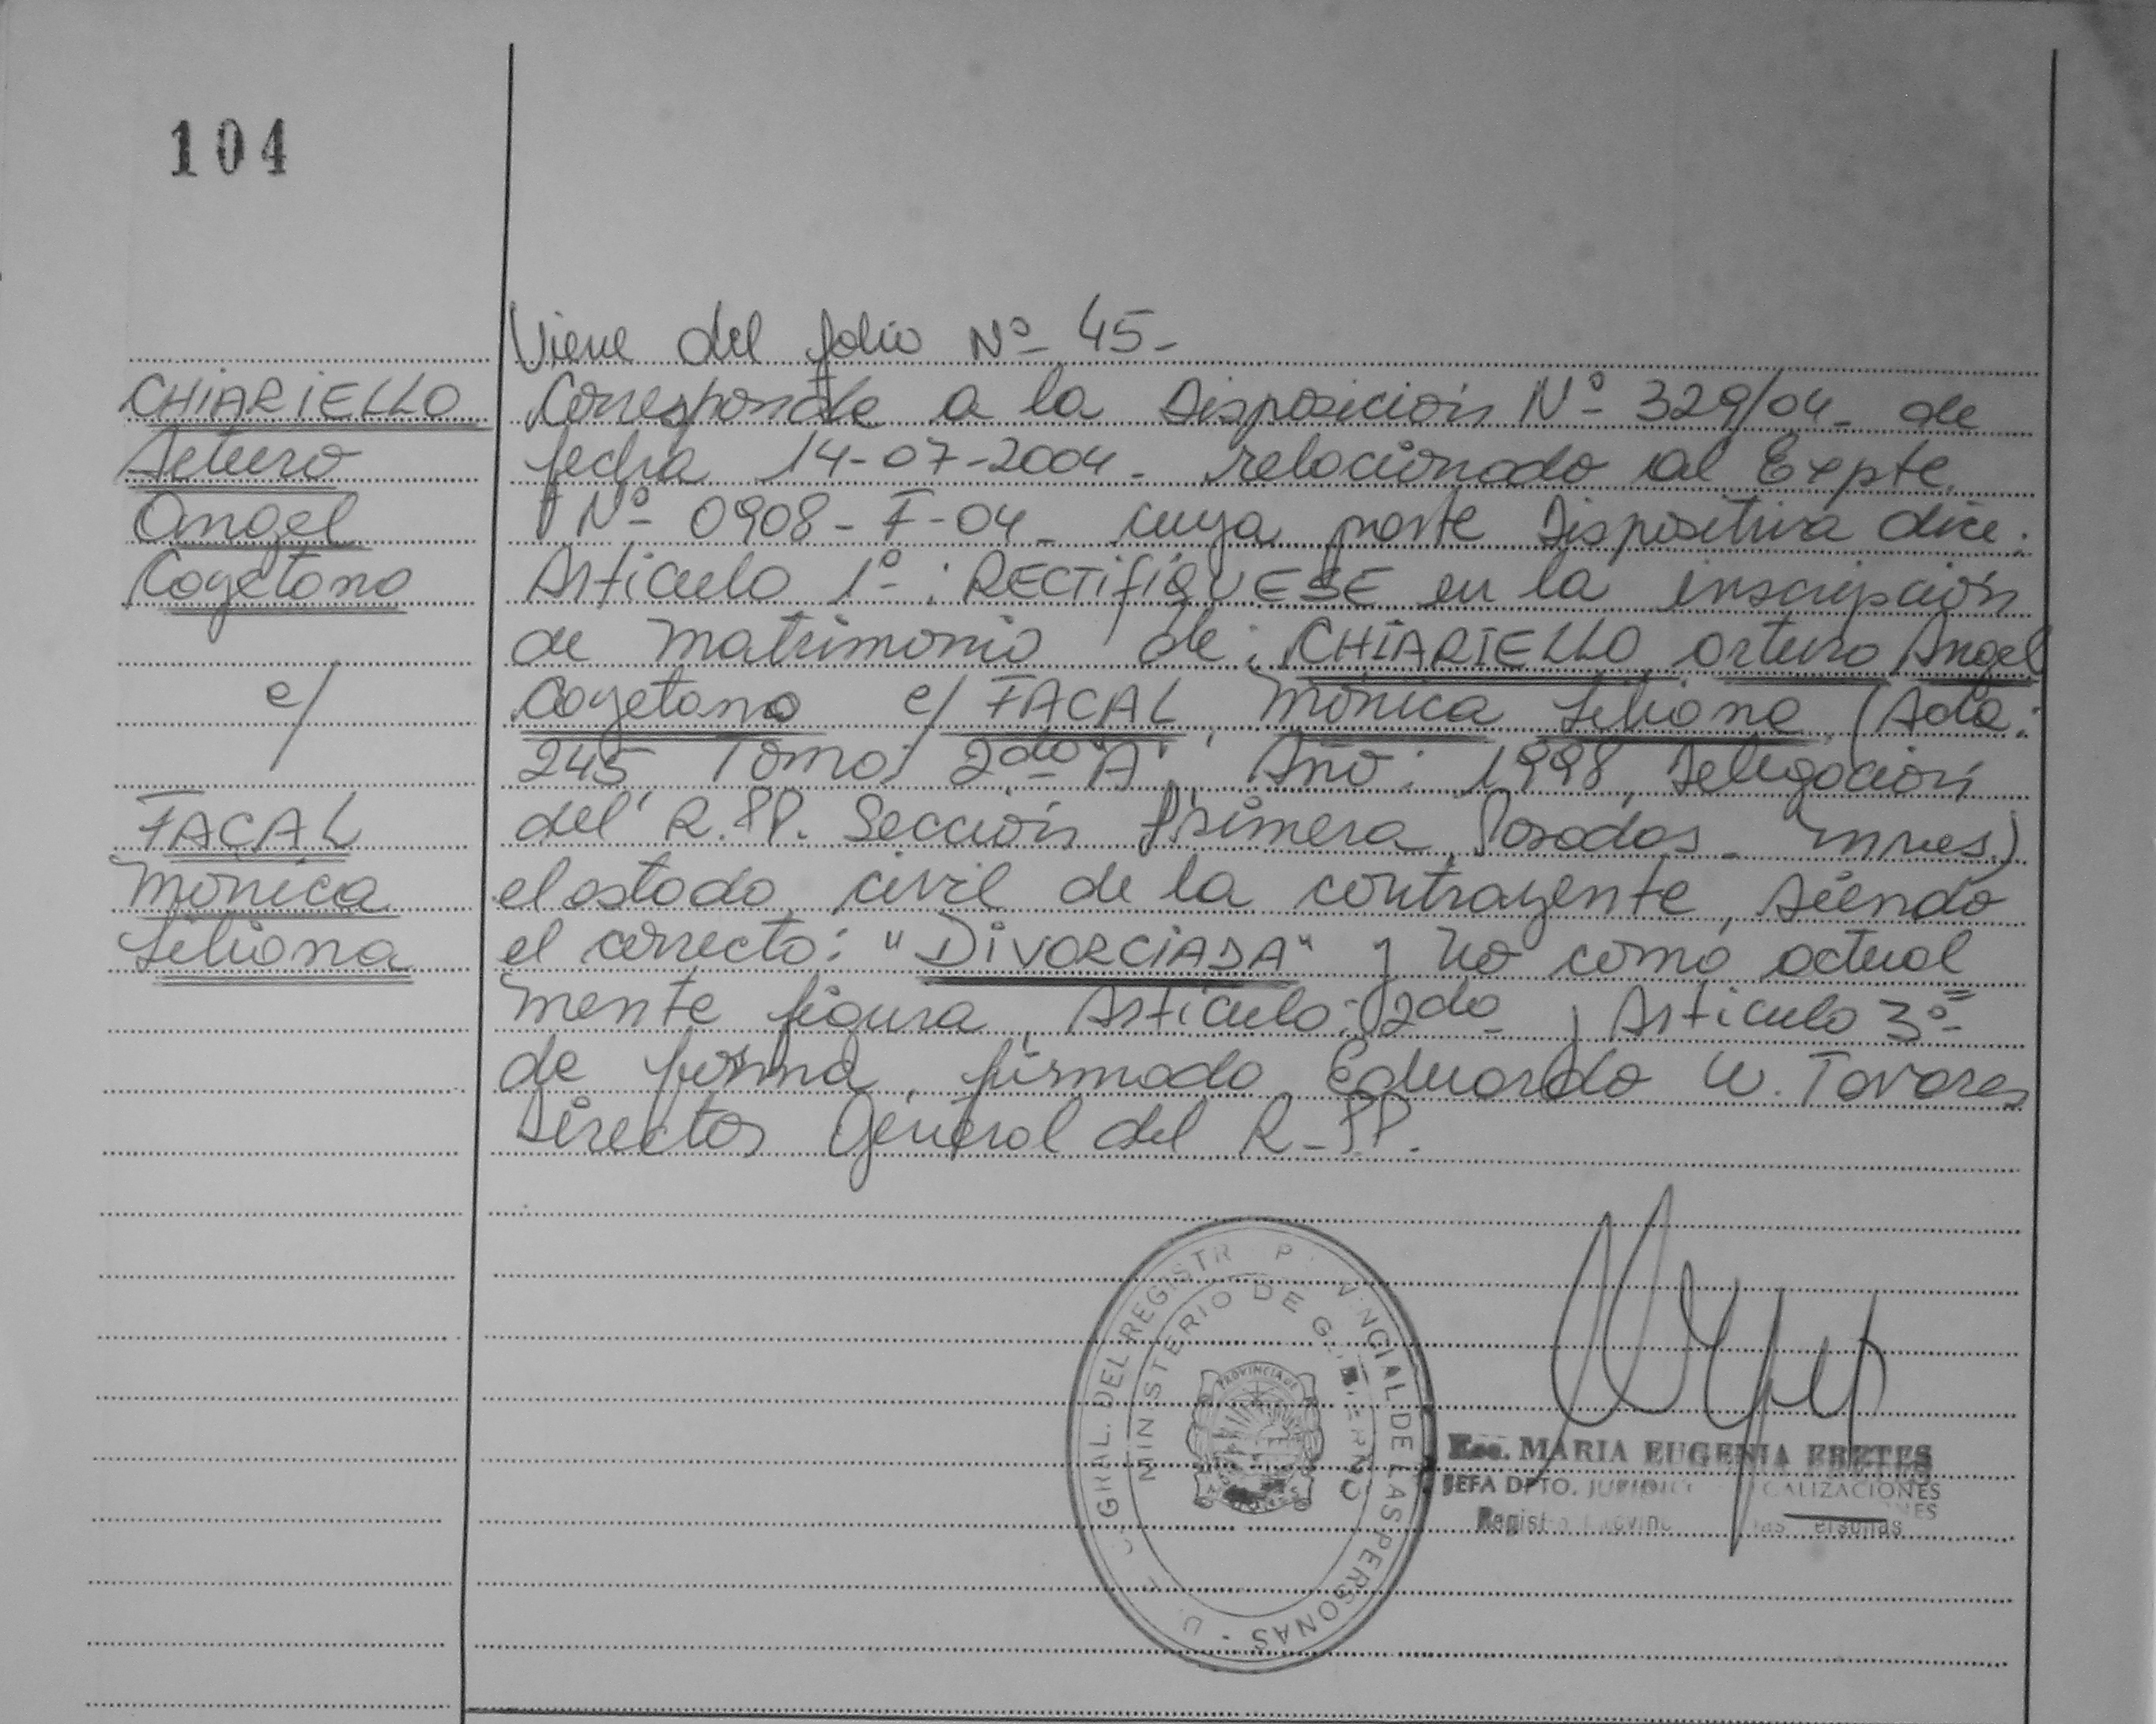 104
Viene del folio Nº 45-
CHIARIELLO
Arturo
Angel
Cayetano
c/
FACAL
Mónica
Liliana
Corresponde a la Disposición Nº 329/04- de
fecha 14-07-2004- relacionado al Expte.
Nº 0908-F-04- cuya parte Dispositiva dice:
Artículo 1º: RECTIFÍQUESE en la inscripción
de Matrimonio de: CHIARIELLO, Arturo Angel
Cayetano c/ FACAL, Mónica Liliana (Acta:
245 Tomo: 2do "A", Año: 1998, Delegación
del R.PP. Sección Primera, Posadas- Mnes)
el estado civil de la contrayente, siendo
el correcto: "DIVORCIADA" y no como actual
mente figura, Artículo: 2do y Artículo 3º
de forma, firmado Eduardo W. Tavares
Director General del R-PP.
GRAL. DEL REGISTR P NCIAL DE LAS PERSONAS
MINISTERIO DE GOBIERNO
PROVINCIA DE
MISIONES
Esc. MARIA EUGENIA FRETES
JEFA DPTO. JURIDICO CALIZACIONES
Registro Provinc las Personas